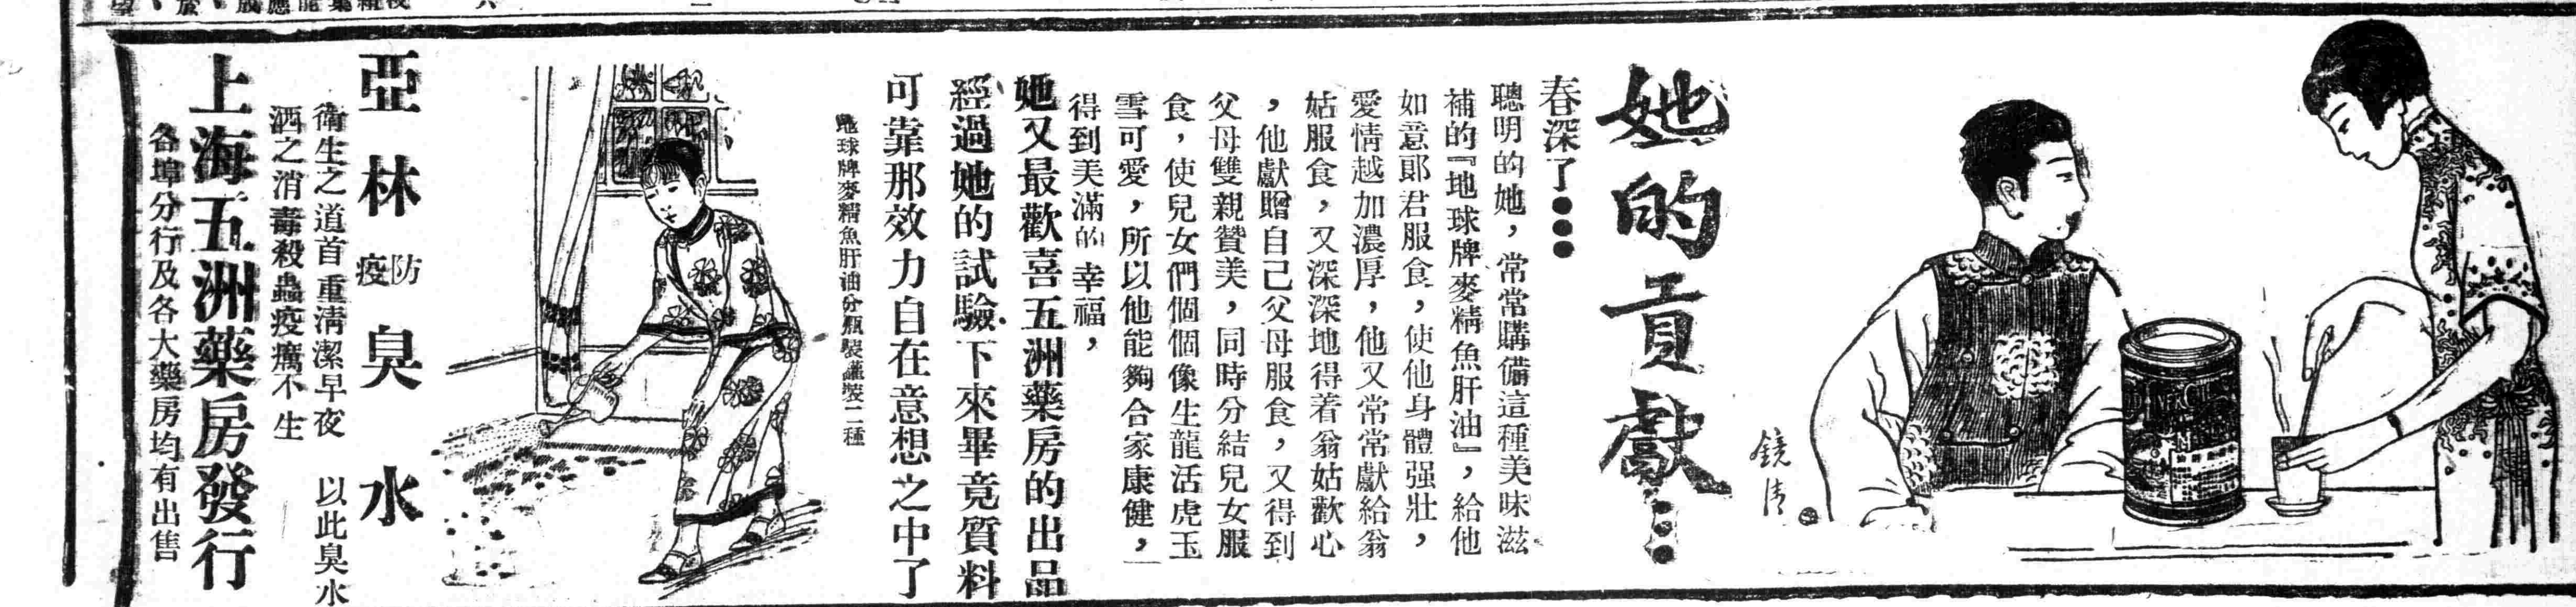 她的貢獻⋮
春深了●●●
聰明的她，常常購備這種美味滋
補的『地球牌麥精魚肝油』，給他
如意郎君服食，使他身體强壯，
愛情越加濃厚，他又常常獻給翁
姑服食，又深深地得着翁姑歡心
，他獻贈自己父母服食，又得到
父母雙親贊美，同時分結兒女服
食，使兒女們個個像生龍活虎玉
雪可愛，所以他能夠合家康健，
得到美滿的幸福，
她又最歡喜五洲藥房的出品
經過她的試驗下來畢竟質料
可靠那效力自在意想之中了
地球牌麥精魚肝油分瓶裝罐裝二種
鏡清
亞林防疫臭水
衛生之道首重清潔早夜 以此臭水
洒之消毒殺蟲疫癘不生
上海五洲藥房發行
各埠分行及各大藥房均有出售